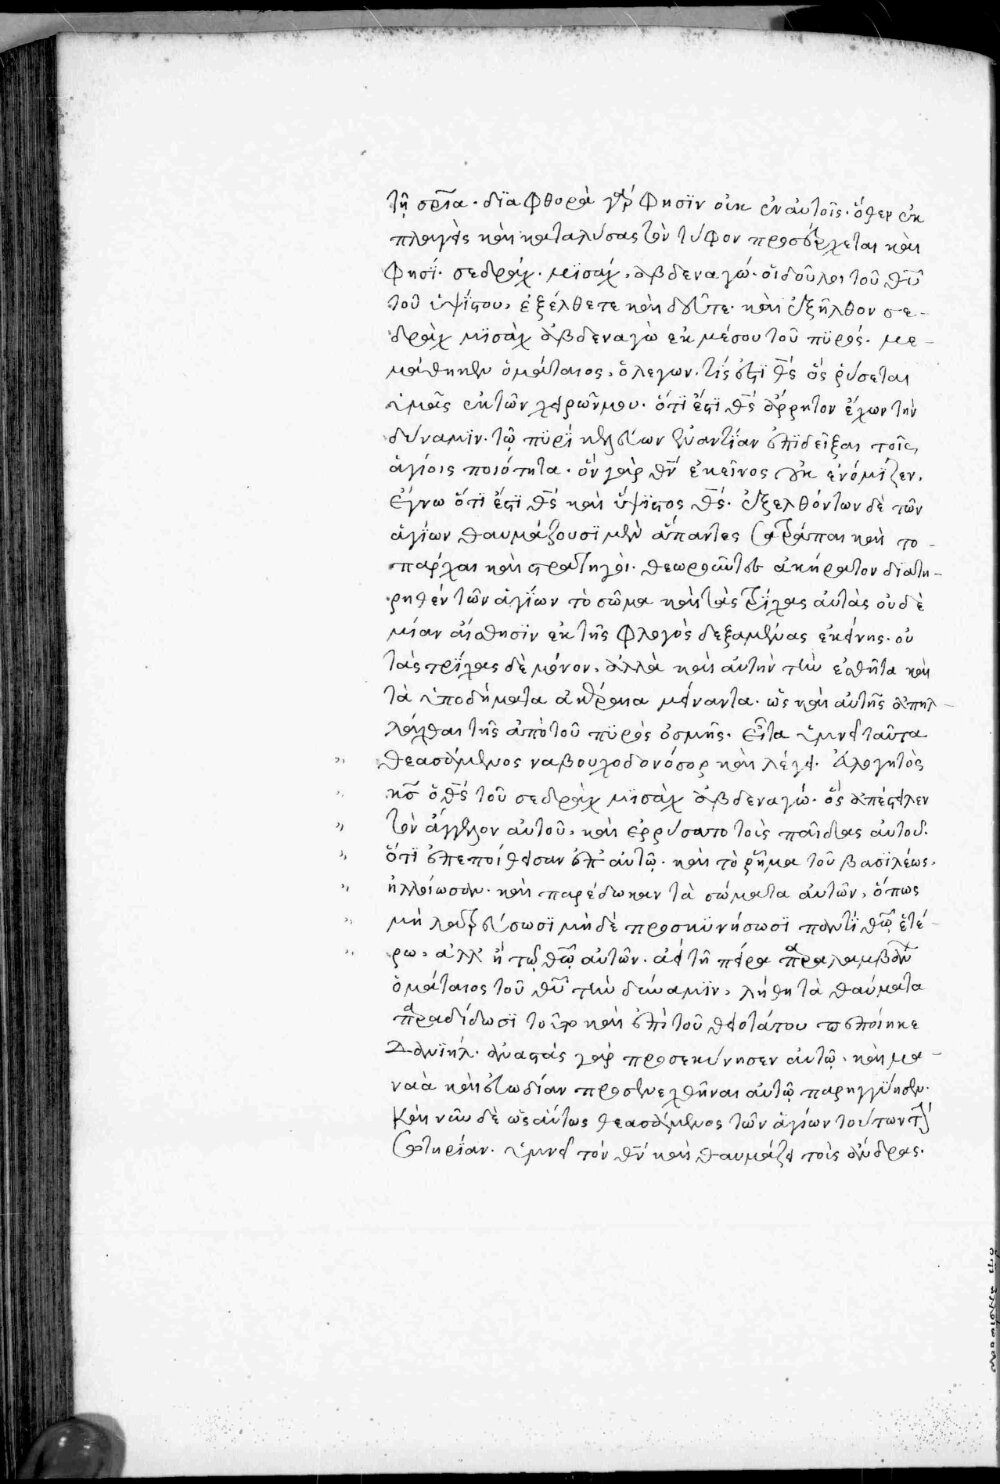 τῆ σρ̅ια· δϊαφθορὰ γὰρ φησϊν οὐκ ἐν αὐτοῖς· ὅθεν ἐκ
πλαγεὶς καὶ καταλύσας τὸν τύφον προσέρχεται καὶ
φησί· σεδράχ· μϊσάχ, ἀβδεναγώ· οἱ δοῦλοι τοῦ θ̅υ̅
τοῦ ὑψίστου, ἐξέλθετε καὶ δεῦτε· καὶ ἐξῆλθον σε-
δρὰχ μϊσὰχ ἀβδεναγὼ ἐκ μέσου τοῦ πϋρός· με-
μάθηκεν ὁ μάταιος, ὁ λεγων· τίς ἐστϊ θ̅ς̅ ὅς ῥύσεται
ὑμᾶς ἐκ τῶν χειρῶν μου· ὅτϊ ἔστϊ θ̅ς̅ ἄρρητον ἔχων τὴν
δύναμϊν· τῷ πϋρὶ κελεύων ἐναντίαν ἐπϊδεῖξαι τοῖς
ἁγίοις ποιότητα· ὅν γὰρ θ̅ν̅ ἐκεῖνος οὐκ ἐνόμϊζεν,
ἔγνω ὅτϊ ἔστϊ θ̅ς̅ καὶ ὕψϊστος θ̅ς̅· ἐξελθόντων δὲ τῶν
ἁγίων θαυμάζουσϊ μὲν ἅπαντες σατράπαι καὶ το-
πάρχαι καὶ στρατηγοί· θεωροῦντες ἀκήρατον διατη-
ρηθὲν τῶν ἁγίων τὸ σῶμα καὶ τὰς τρίχας αὐτὰς οὐδὲ
μίαν αἴσθησϊν ἐκ τῆς φλογὸς δεξαμένας ἐκείνης· οὐ
τὰς τρίχας δὲ μόνον, ἀλλὰ καὶ αὐτὴν τὴν ἐσθῆτα καὶ
τὰ ὑποδήματα ἀκέραια μείναντα· ὡς καὶ αὐτῆς ἀπηλ-
λάχθαι τῆς ἀπὸ τοῦ πϋρὸς ὀσμῆς· Εἶτα ὑμνεῖ ταῦτα
θεασάμενος ναβουχοδονόσορ καὶ λέγει· Εὐλογητὸς
κ̅ς̅ ὁ θ̅ς̅ τοῦ σεδρὰχ μϊσὰχ ἀβδεναγώ· ὅς ἀπέστειλεν
τὸν ἄγγελον αὐτοῦ, καὶ ἐρρύσατο τοὺς παῖδας αὐτοῦ·
ὅτϊ ἐπεποίθεισαν ἐπ' αὐτῷ· καὶ τὸ ῥῆμα τοῦ βασϊλέως·
ἠλλοίωσαν· καὶ παρέδωκαν τὰ σώματα αὐτῶν, ὅπως
μὴ λατρεύσωσϊ μηδὲ προσκϋνήσωσϊ παντϊ θ̅ω̅ ἑτέ-
ρω, ἀλλ' ἢ τῷ θ̅ω̅ αὐτῶν· ἀεὶ τῆ πείρα παραλαμβάνων
ὁ μάταιος τοῦ θ̅υ̅ τὴν δύναμϊν, λήθη τὰ θαύματα
παραδίδωσϊ τοῦτο καὶ ἐπὶ τοῦ θειοτάτου πεποίηκε
Δανϊήλ· ἀναστὰς γὰρ προσεκύνησεν αὐτῷ· καὶ μα-
ναὰ καὶ εὐωδίαν προσενεχθῆναι αὐτῷ παρηγγύησεν·
Καὶ νῦν δὲ ὡσαύτως θεασάμενος τῶν ἁγίων τούτων τὴν
σωτηρίαν· ὑμνεῖ τὸν θ̅ν̅ καὶ θαυμάζει τοὺς ἄνδρας·